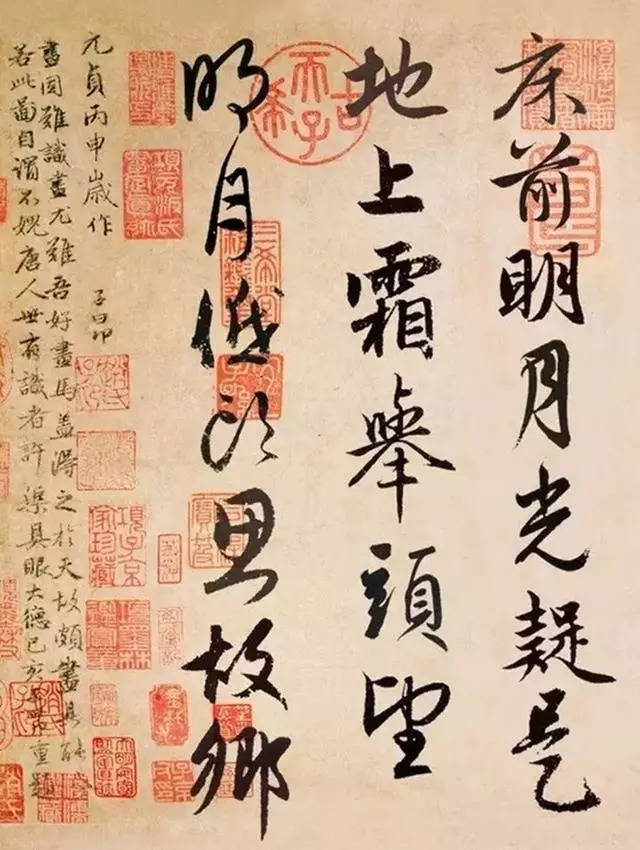 床前明月光疑是
地上霜舉頭望
明月低頭思故鄉
元貞丙申歲作
子昂
畫固難識畫尤難吾好畫馬蓋得之於天故頗盡其能
若此圖自謂不媿唐人世有識者許渠具眼大德己亥重題
古希天子
項子京家珍藏